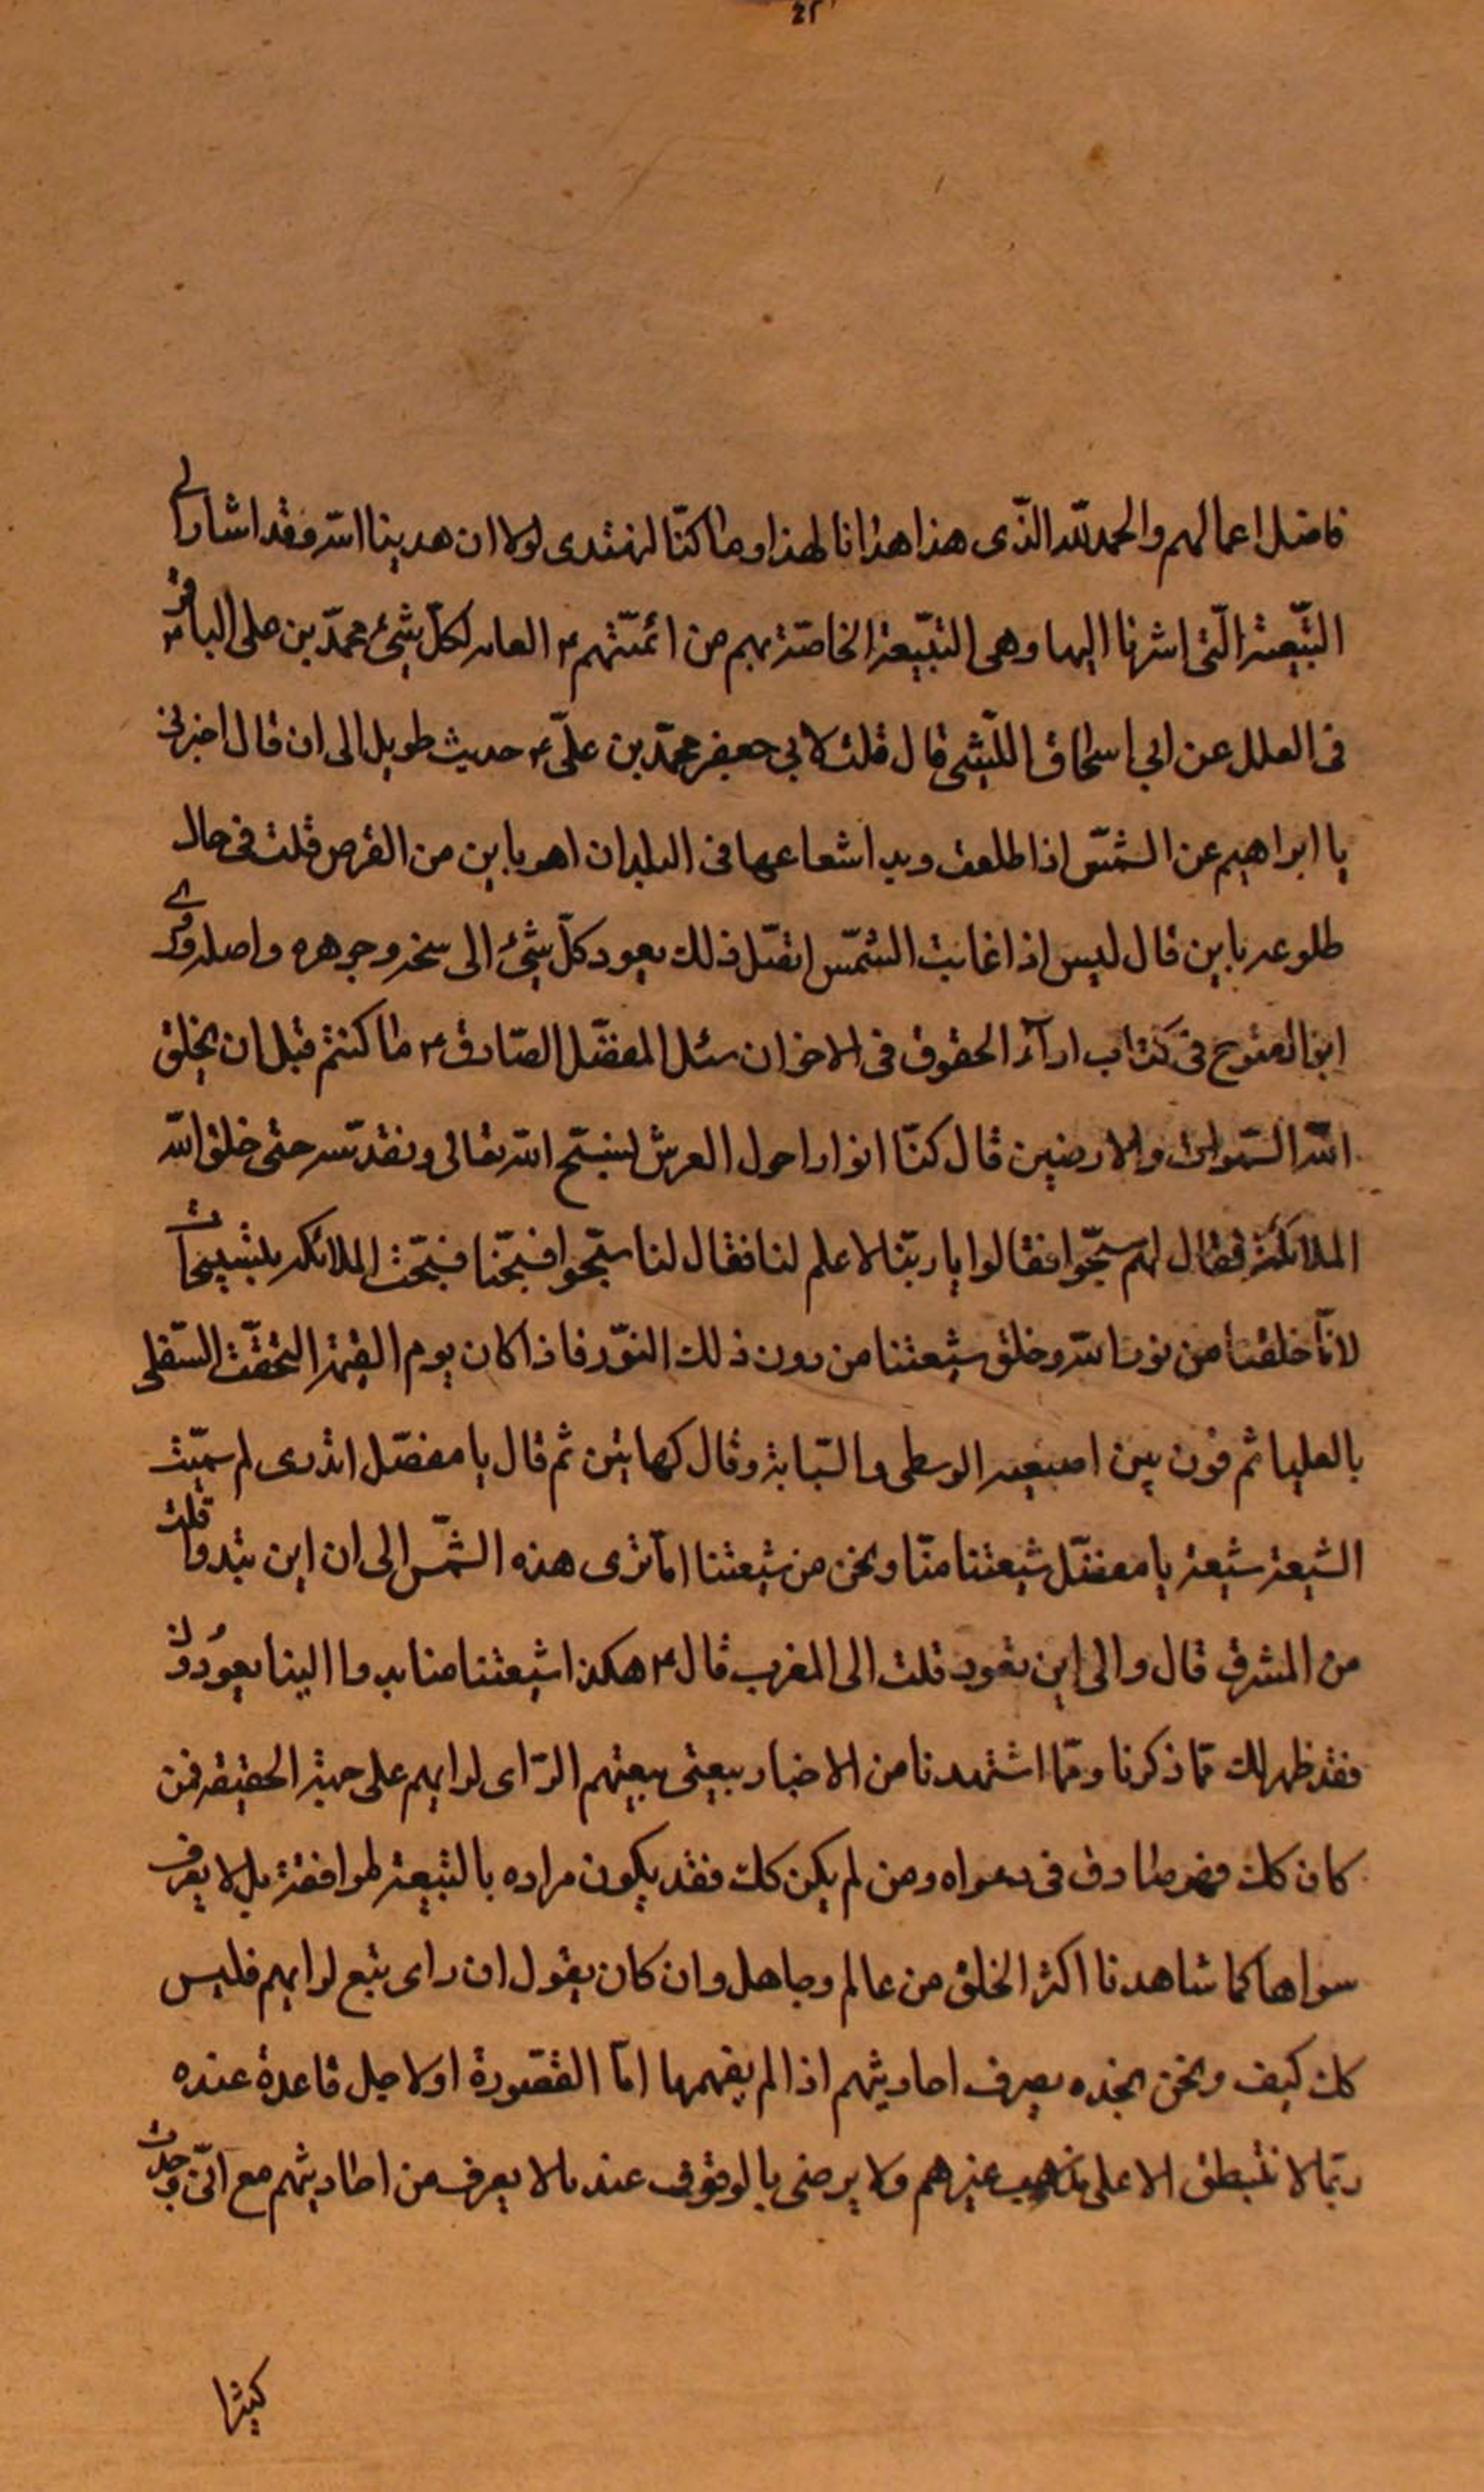 فاضل اعمالهم والحمد لله الذّى هذا هذانا لهذا وما كنّا لنهتدى لولا ان هدينا الله وفقد اشار الى
التّبعيّة الّتى اشرنا اليها وهى التّبعيّة الخاصّة بهم من ائمّتهم ع العالم لكلّ شيئ محمّد بن على الباقر ع
فى العلل عن ابي اسحاق اللّيثى قال قلت لابي جعفر محمّد بن علىّ ع حديث طويل الى ان قال اخبرنى
يا ابراهيم عن الشمّس اذا طلعت وبدا شعاعها فى البلدان اهو باين من القرص قلت فى حال
طلوعه باين قال ليس اذا غابت الشمّس اتصّل ذلك يعود كلّ شيئ الى سنخه وجوهره واصله وروى
ابو الفتوح فى كتاب ادآء الحقوق فى الاخوان سئل المفضّل الصّادق ع ما كنتم قبل ان يخلق
الله السّموات والارضين قال كنّا انوارا حول العرش لنسبّح الله تعالى ونقدّسه حتى خلق الله
الملائكة فقال لهم سبّحوا فقالوا يا ربّنا لا علم لنا فقال لنا سبّحوا فسبّحنا فسبّحت الملائكة بتسبيحنا
لانّا خلقنا من نور الله وخلق شيعتنا من دون ذلك النّور فاذا كان يوم القيمة التحقّت السّفلى
بالعليا ثم قرن بين اصبعيه الوسطى والسّبابة وقال كهاتين ثم قال يا مفضّل اتدرى لم سمّيت
الشيعة شيعة يا مفضّل شيعتنا منّا ونحن من شيعتنا امآ ترى هذه الشمّس الى ان اين تبدوا قلت
من المشرق قال والى اين تعود قلت الى المغرب قال ع هكذا شيعتنا منا بدوا الينا يعودون
فقد ظهر لك ممّا ذكرنا وممّا اشتهدنا من الاخبار بيعتى بيعتهم الرّاى لرايهم على جهة الحقيقة فمن
كان كك فهو صادق فى دعواه ومن لم يكن كك فقد يكون مراده بالتبعيّة لموافقة بل لا يعرف
سواها كما شاهدنا اكثر الخلق من عالم وجاهل وان كان يقول ان راى تبع لرايهم فليس
كك كيف ونحن نجده يصرف احاديثهم اذا لم يفهمها امّا القصورة او لاجل قاعدة عنده
ربّما لا تنطبق الا على مذهب غيرهم ولا يرضى بالوقوف عند ما لا يعرف من احاديثهم مع انّى وجدت
كثيرا